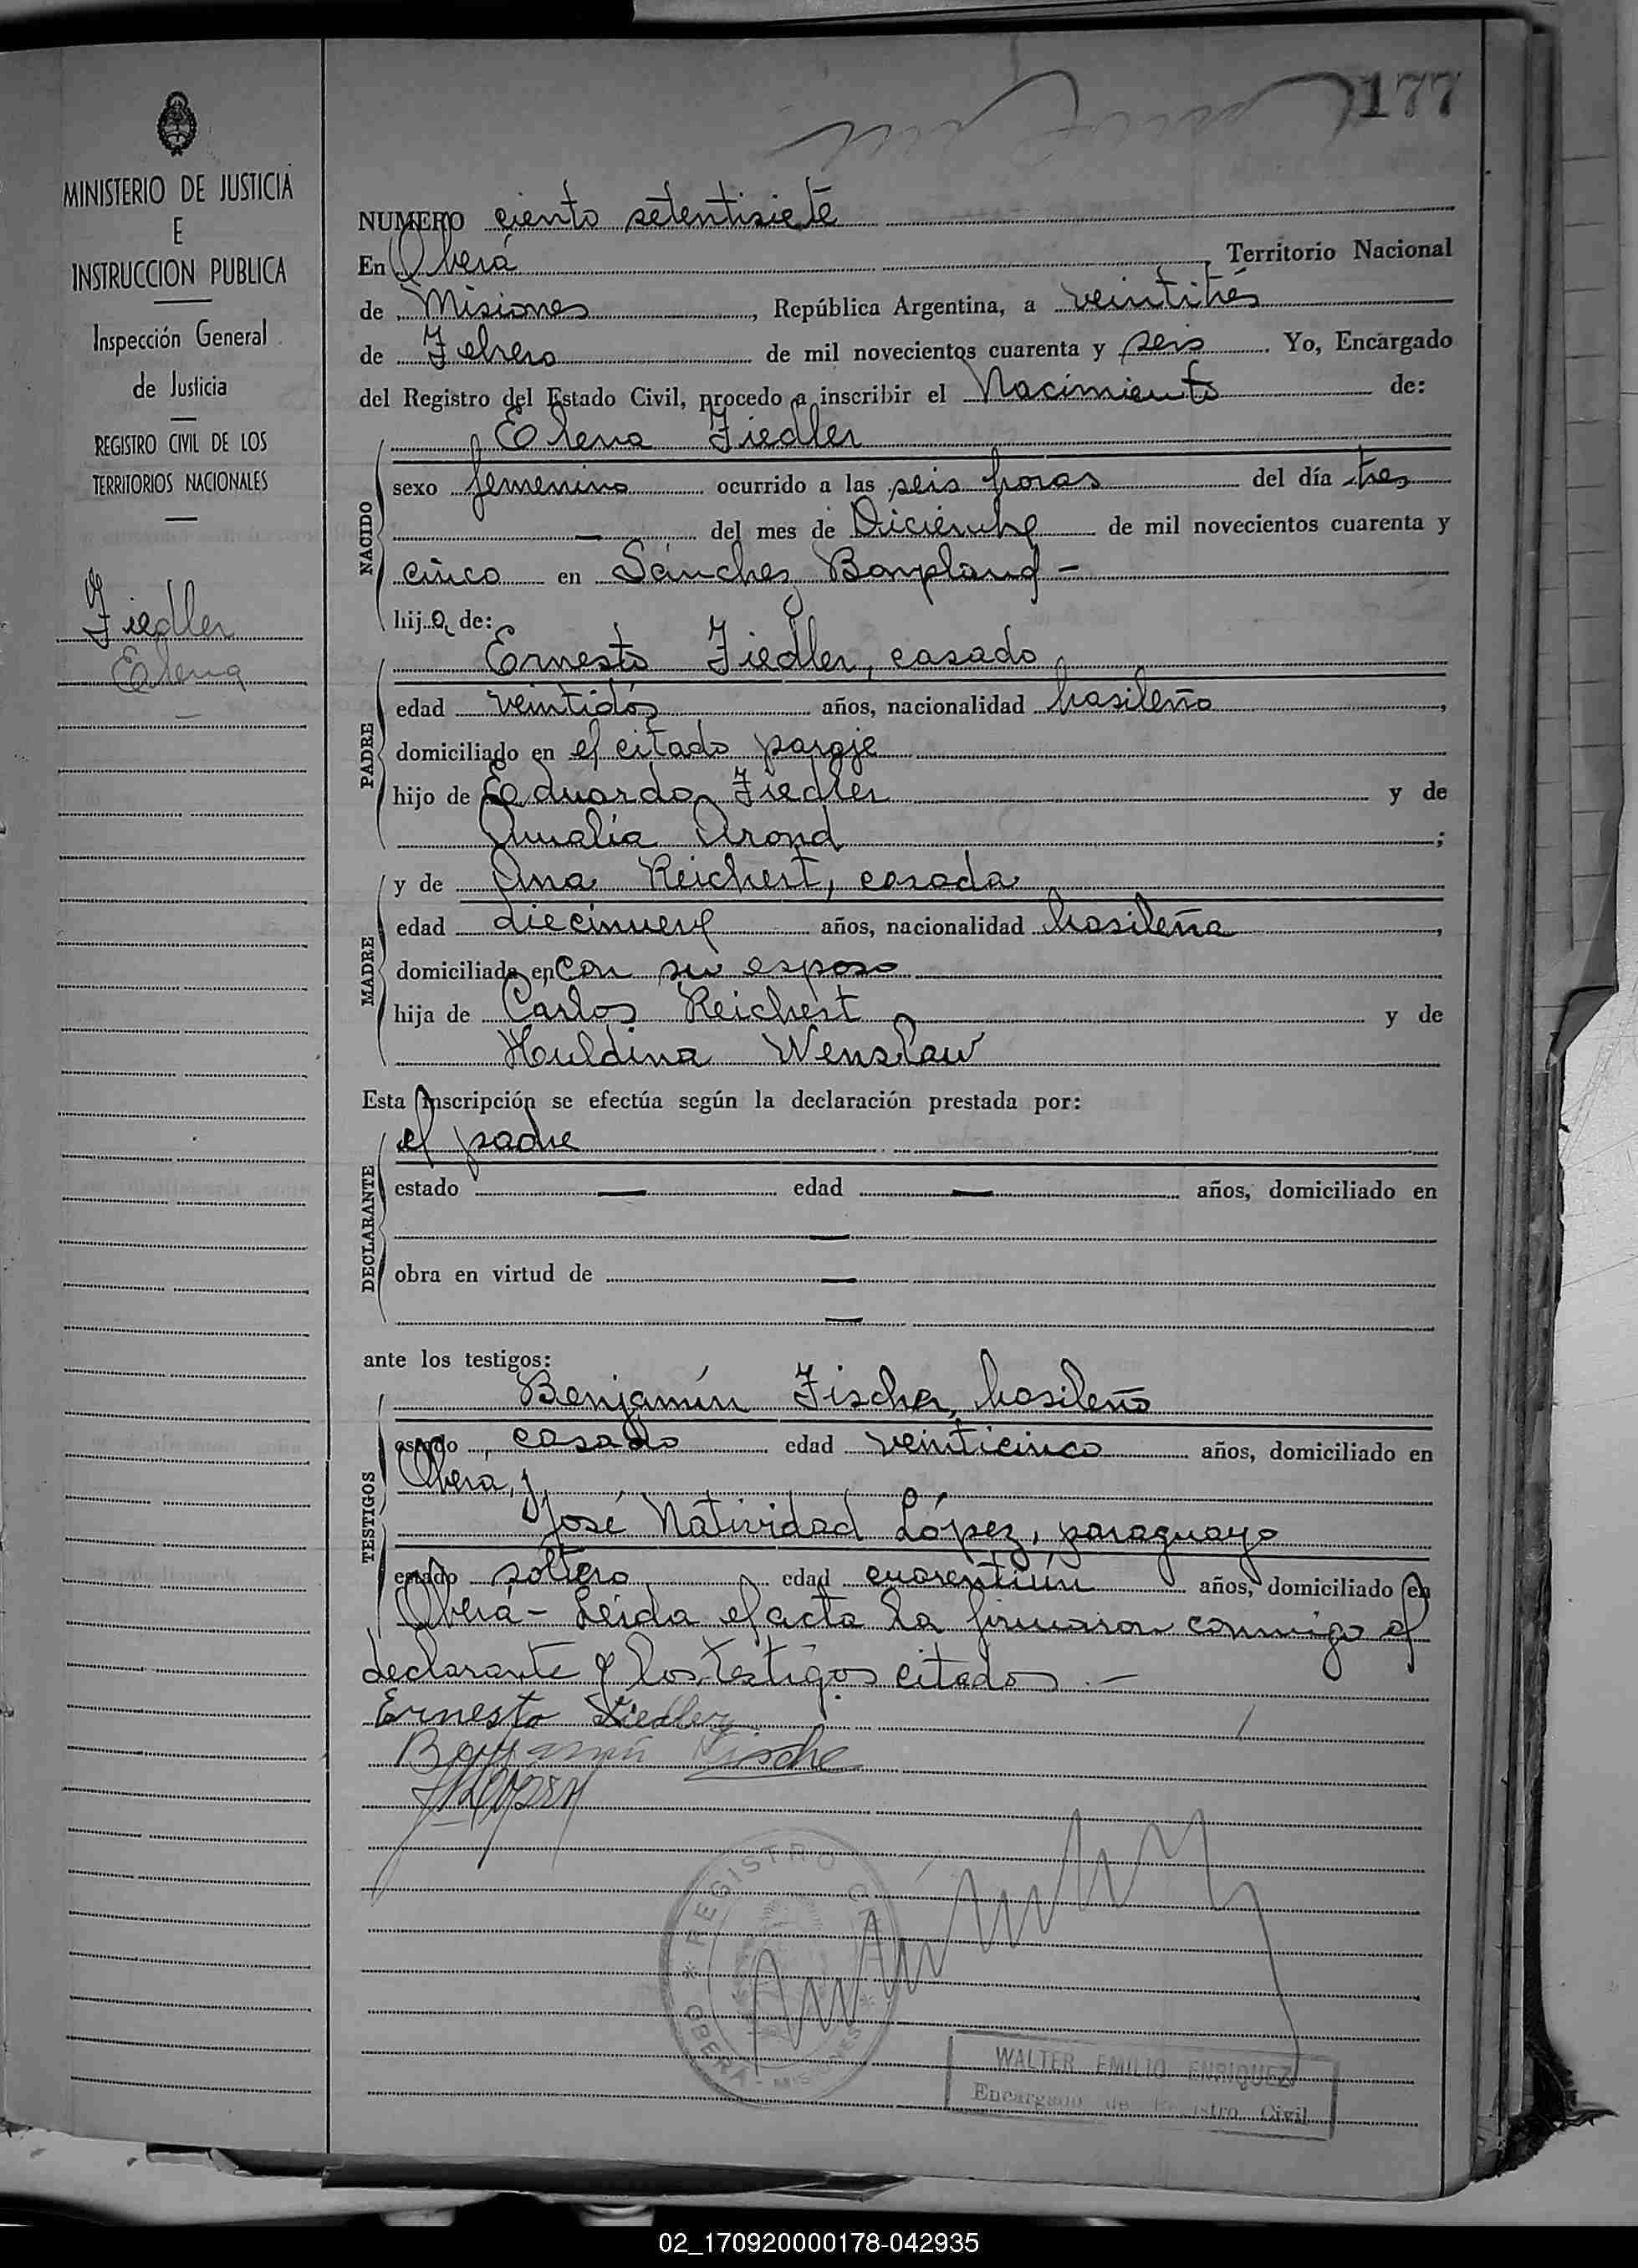 177
MINISTERIO DE JUSTICIA
E
INSTRUCCION PUBLICA
Inspección General
de Justicia
REGISTRO CIVIL DE LOS
TERRITORIOS NACIONALES
Fiedler
Elena
NUMERO ciento setentisiete
En Oberá, Territorio Nacional
de Misiones, República Argentina, a veintitrés
de Febrero de mil novecientos cuarenta y seis. Yo, Encargado
del Registro del Estado Civil, procedo a inscribir el Nacimiento de:
NACIDO
Elena Fiedler
sexo femenino ocurrido a las seis horas del día tres
— del mes de Diciembre de mil novecientos cuarenta y
cinco en Sánchez Bonpland -
hija de:
PADRE
Ernesto Fiedler, casado
edad veintidós años, nacionalidad brasileño,
domiciliado en el citado paraje
hijo de Eduardo Fiedler y de
Amalia Arond;
MADRE
y de Ana Reichert, casada
edad diecinueve años, nacionalidad brasileña,
domiciliada en con su esposo
hija de Carlos Reichert y de
Huldina Wenslaw
Esta inscripción se efectúa según la declaración prestada por:
DECLARANTE
el padre
estado — edad — años, domiciliado en
—
obra en virtud de —
—
ante los testigos:
TESTIGOS
Benjamín Fischer, brasileño
estado casado edad veinticinco años, domiciliado en
Oberá, y
José Natividad López, paraguayo
estado soltero edad cuarentiún años, domiciliado en
Oberá - Leída el acta la firmaron conmigo el
declarante y los testigos citados. -
Ernesto Fiedler
Benjamín Fische
REGISTRO CIVIL
OBERA - MISIONES
WALTER EMILIO ENRIQUEZ
Encargado de Registro Civil
02_170920000178-042935